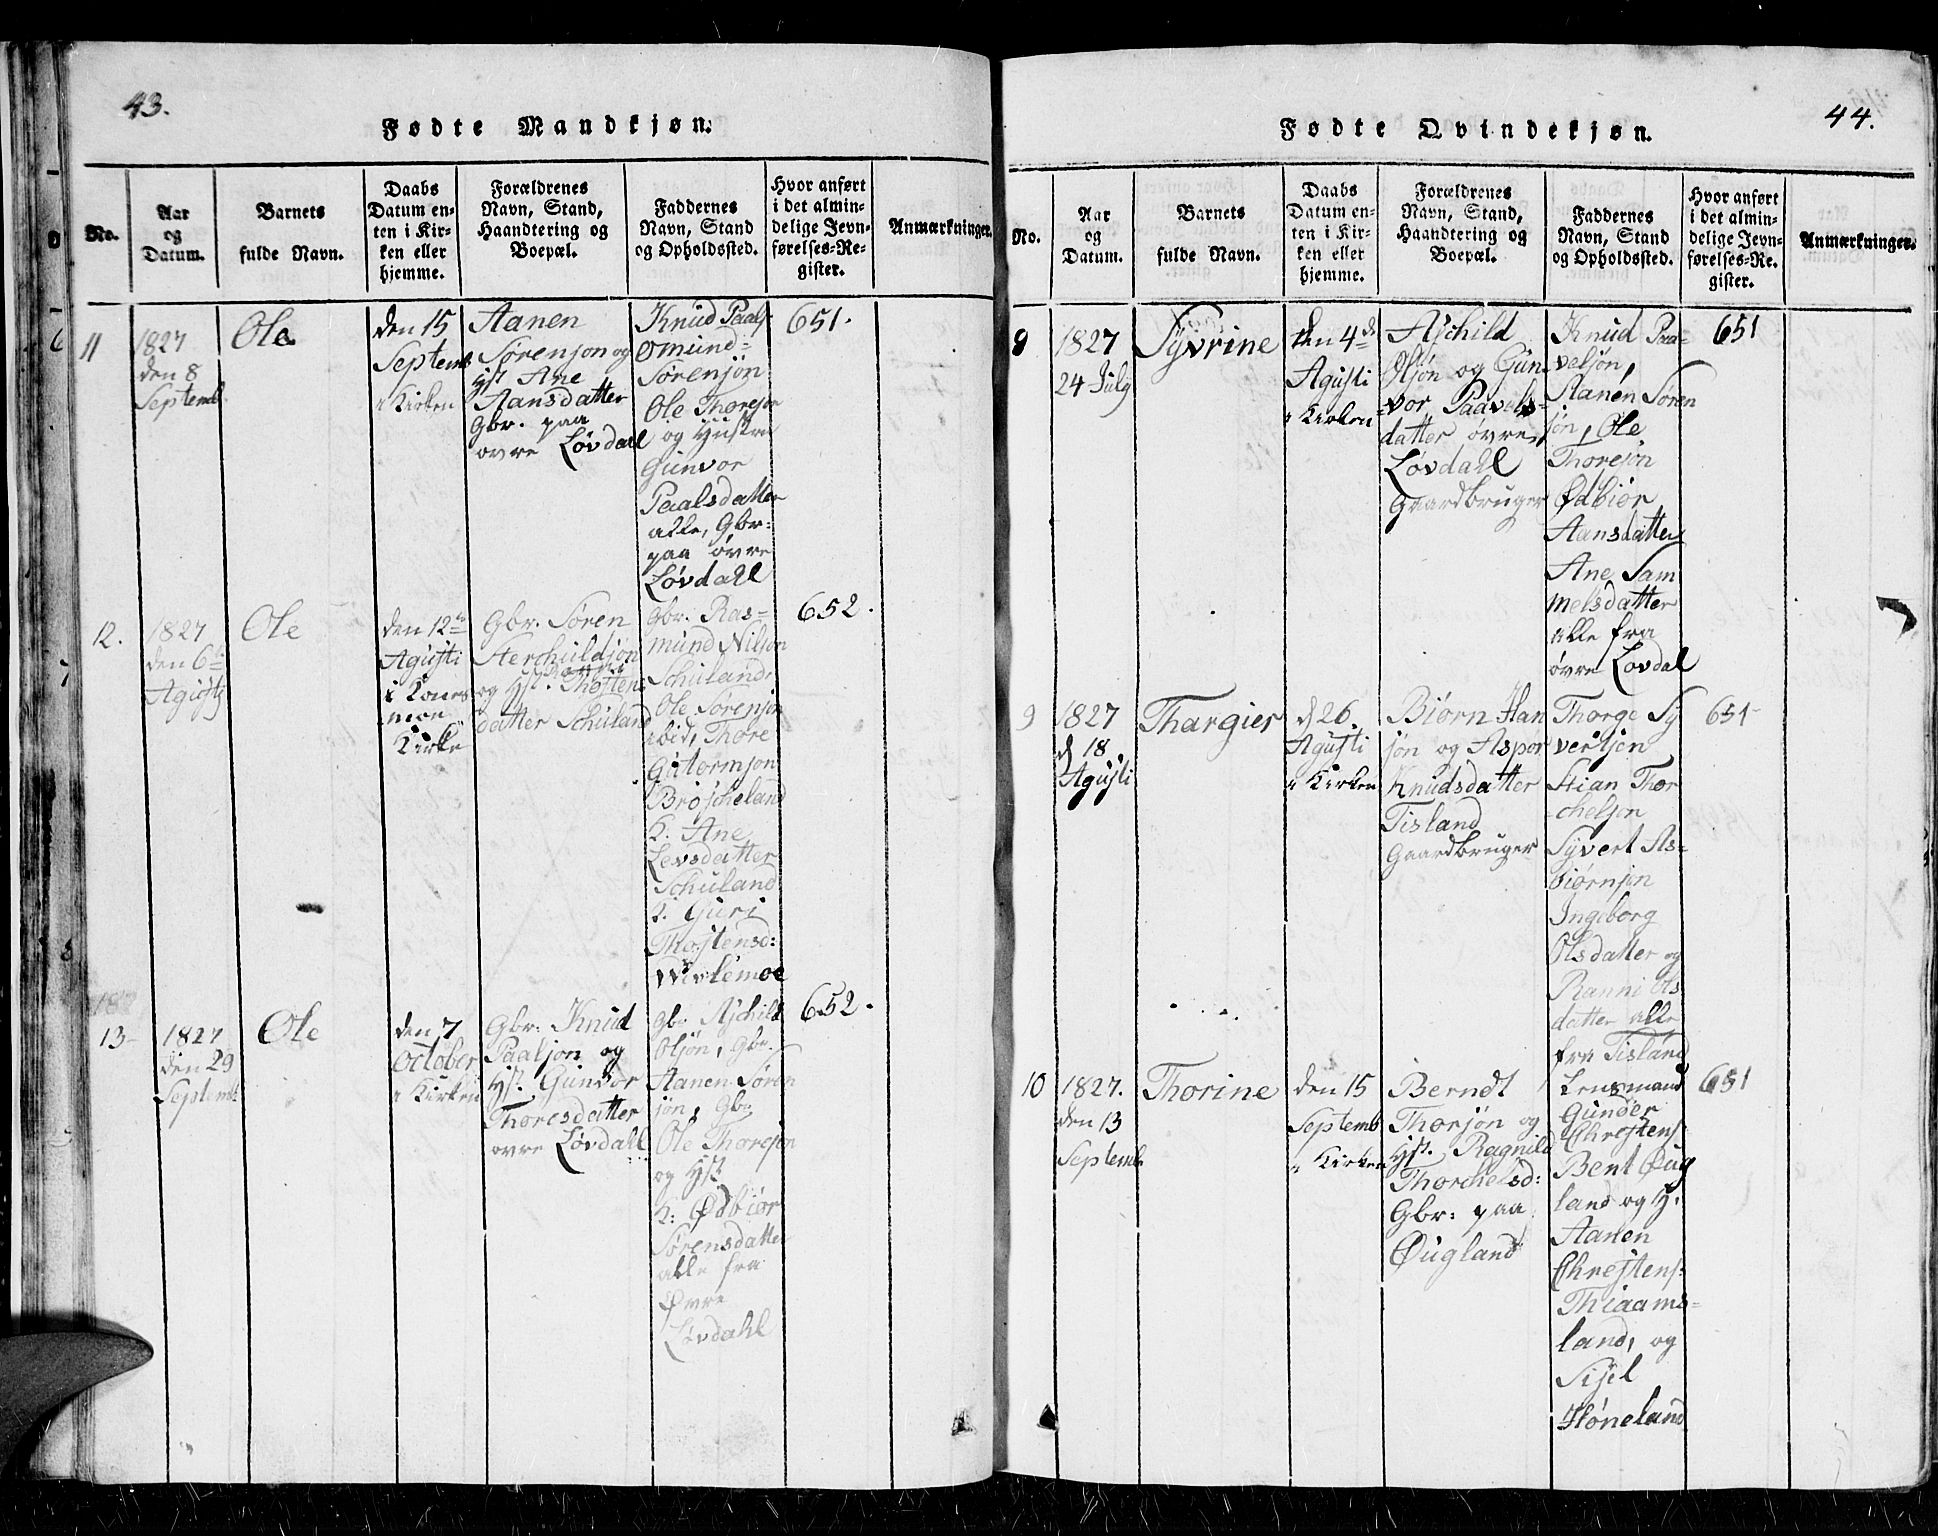 43.
Fødte Mandkjøn.
No.
Aar
og
Datum.
Barnets
fulde Navn.
Daabs
Datum en-
ten i Kir-
ken eller
hjemme.
Forældrenes
Navn, Stand,
Haandtering og
Boepæl.
Faddernes
Navn, Stand
og Opholdssted.
Hvor anført
i det almin-
delige Jevn-
førelses-Re-
gister.
Anmærkninger.
11
1827
den 8
Septemb.
Ole
den 15
Septemb
i Kirken
Aanen
Sørensøn og
Hst. Ane
Aansdatter
Gbr. paa
ovre Løvdahl
Knud Paals
Omund-
Sørensøn
Ole Thoresøn
og Hustru
Gunvor
Paalsdatter
alle, Gbr:
paa øvre
Løvdahl
651.
12.
1827
den 6te
Agusti
Ole
den 12te
Agusti
i
Kirke
Gbr. Søren
Aerchildsøn
og Hst. Thostens
datter Schuland
gbr. Ras-
mund Nilsøn
Schuland,
Ole Sørensøn
ibid, Thore
Gutormsøn
Bröscheland
K. Ane
Levsdatter
Schuland
K. Guri
Thostensd:
652.
13
1827
den 29
Septemb
Ole
den 7
October
i Kirken
Gbr: Knud
Paalsøn og
Hst. Gunvor
Thoresdatter
ovre Løvdahl
gbr Aschild
Olsøn, Gbr.
Aanen Søren
søn, Gbr
Ole Thoresøn
og Hst.
K: Ødbiør
Sørensdatter
alle fra
Øvre
Løvdahl
652.
44.
Fødte Qvindekjøn.
No.
Aar
og
Datum.
Barnets
fulde Navn.
Daabs
Datum en-
ten i Kir-
ken eller
hjemme.
Forældrenes
Navn, Stand,
Haandtering og
Boepæl.
Faddernes
Navn, Stand
og Opholdssted.
Hvor anført
i det almin-
delige Jevn-
førelses-Re-
gister.
Anmærkninger.
8
1827
24 July
Syvrine
den 4de
Agusti
i Kirken
Aschild
Olsøn og Gun
vor Paavels-
datter øvre
Løvdahl
Gaardbruger
Knud Paa-
velsøn,
Aanen Søren
søn, Ole
Thoresøn
Ødbiør
Aansdatter
Ane Sam
melsdatter
alle fra
øvre Lovdal
651
9
1827
d 18
Agusti
Thargier
d 26.
Agusti
i Kirken
Biørn Han
søn og Aspor
Knudsdatter
Tisland
Gaardbruger
Thorge Sy
vertsen
Stian Thor
chelsen
Syvert As-
biørnsen
Ingeborg
Olsdatter og
Ranni Ols
datter alle
fra Tisland
651
10
1827.
den 13
Septemb
Thorine
den 15
Septemb
i Kirken
Berndt
Thorsøn og
Hst. Ragnild
Thorchelsd:
Gbr: paa
Øugland
Lensmand
Gunder
Chrestens:
Bent Øug
land og H.
Aanen
Chrestens:
Thiaams-
land, og
Sisel
Høneland
651